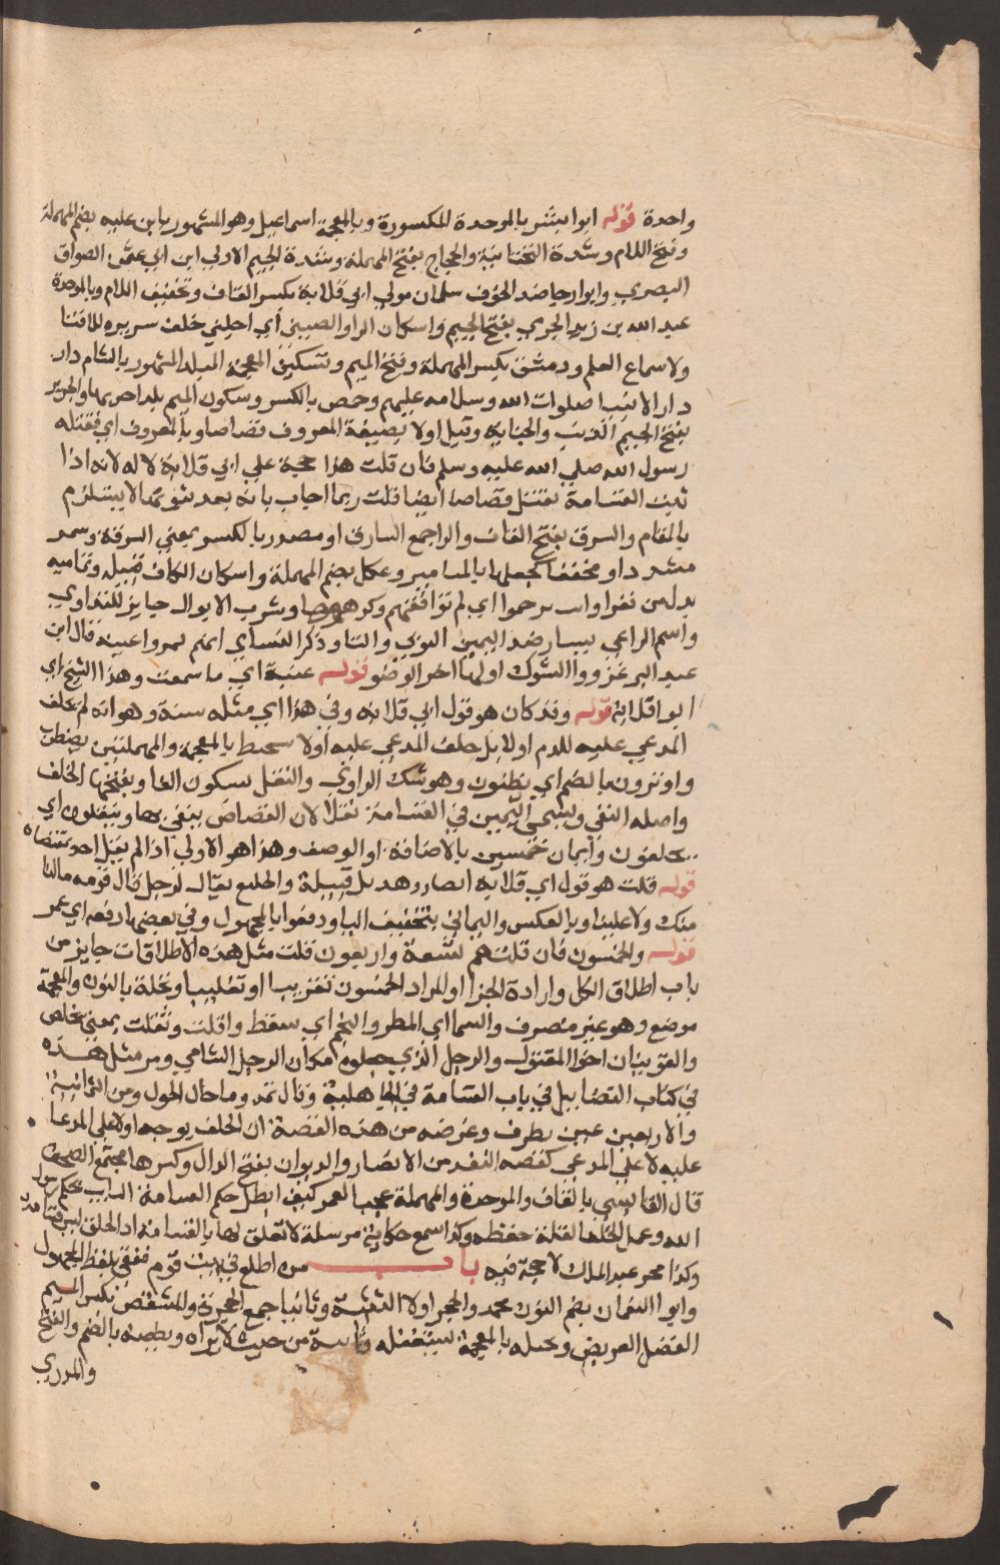 واحدة قوله ابوا بشر بالموحدة المكسورة وبالمعجة اسماعيل وهو المشهور بابن علية بضم المهملة
وفتح اللام وشدة التحتانية والحجاج بفتح المهملة وشدة الجيم الاولى ابن ابي عثمن الصواق
البصري وابوا رجا ضد الخوف سلمان مولي ابي قلابة بكسر القاف وتخفيف اللام وبالموحدة
عبد الله بن زيد الجرمي بفتح الجيم واسكان الرا والصيبني أي احلني خلف سريره للافتا
ولاسماع العلم ودمشق بكسر المهملة وفتح الميم وتسكين المعجة البلد المشهور بالشام دار
دار الانبيا صلوات الله وسلامه عليهم وحمص بالكسر وسكون الميم بلد اخر بها والجرير
بفتح الجيم الذنب والجناية وقيل اولا بصيغة المعروف قصاصا وبالمعروف اي فقتله
رسول الله صلي الله عليه وسلم فان قلت هذا حجة علي ابي قلابة لا له لانه اذا
ثبت القسامة يقتل قصاصا ايضا قلت ربما اجاب بانه بعد ثبوتها لا يستلزم
بالقام والسرق بفتح القاف والراجمع السارق او مصدر بالكسر بمعني السرقة وسمر
مشددا ومخففا كحلها بالمسامير وعكل بضم المهملة واسكان الكاف قبيلة وثمانية
بدل من نفرا واستوخموا اي لم توافقهم وكرهوها وشرب الابوال جايز للتداوي
واسم الراعي يسار ضد اليمين النوبي والتا وذكر النساي انهم سمروا عينه قال ابن
عبد البر غرزوا الشوك اولها اخر الوضو قوله عنبسة اي ما سمعت وهذا الشيخ اي
ابوا قلابة قوله وقد كان هو قول ابي قلابة وفي هذا اي مثله سنة وهو انه لم يحلف
المدعي عليه للدم اولا بل حلف المدعي عليه اولا يتشحط بالمعجة والمهملتين يضطرب
واو ترون بالضم اي يظنون وهو شك الراوي والنفل بسكون الفا وبفتحها الحلف
واصله النفي ويسمي اليمين في القسامة نفلا لان القصاص ينفي بها وينفلون اي
يحلفون وايمان خمسين بالاضافة او الوصف وهذا هو الاولي اذا لم يقبل احد بمقتضاه
قوله قلت هو قول ابي قلابة انصار وهديل قبيلة والخليع يقال لرجل قال قومه مالنا
منك ولا علينا وبالعكس واليماني بتخفيف اليا ودفعوا بالمجهول وفي بعضها رفعه اي عمر
قوله والخمسون فان قلت هم تسعة واربعون قلت مثل هذه الاطلاقات جايز من
باب اطلاق الكل وارادة الجزا او المراد الخمسون تقريبا او تغليبا ونخلة بالنون والمعجة
موضع وهو غير منصرف والسما اي المطر وانهجم اي سقط وافلت وتفلت بمعني تخلص
والقرينان اخوا المقتول والرجل الذي جعلوه مكان الرجل الشامي ومر مثل هذه
في كتاب الفضايل في باب القسامة في الجاهلية وقال ثمة وما حال الحول ومن الثمانية
والاربعين عين تطرف وغرضه من هذه القصة ان الحلف يوجه اولا علي المدعا
عليه لا علي المدعي كقصة النفر من الانصار والديوان بفتح الدال وكسرها مجتمع الصحف
قال القابسي بالقاف والموحدة والمهملة عجبا لعمر كيف ابطل حكم القسامة الثابت بحكم رسول
الله وعمل الخلفا بقتلة حفظه وكذا سمع حكاية مرسلة لا تعلق لها بالقسامة اذ الخلع ليس قسامة
وكذا محو عبد الملك لا حجة فيه باب من اطلع في بيت قوم ففقي بلفظ المجهول
وابوا النعمان بضم النون محمد والحجر اولا الثقبة وثانيا جمع الحجرة والمشقص بكسر الميم
النصل العريض ويختله بالمعجة يستغفله وثانية من حيث لا يراه ويطعنه بالضم والفتح
والمدري